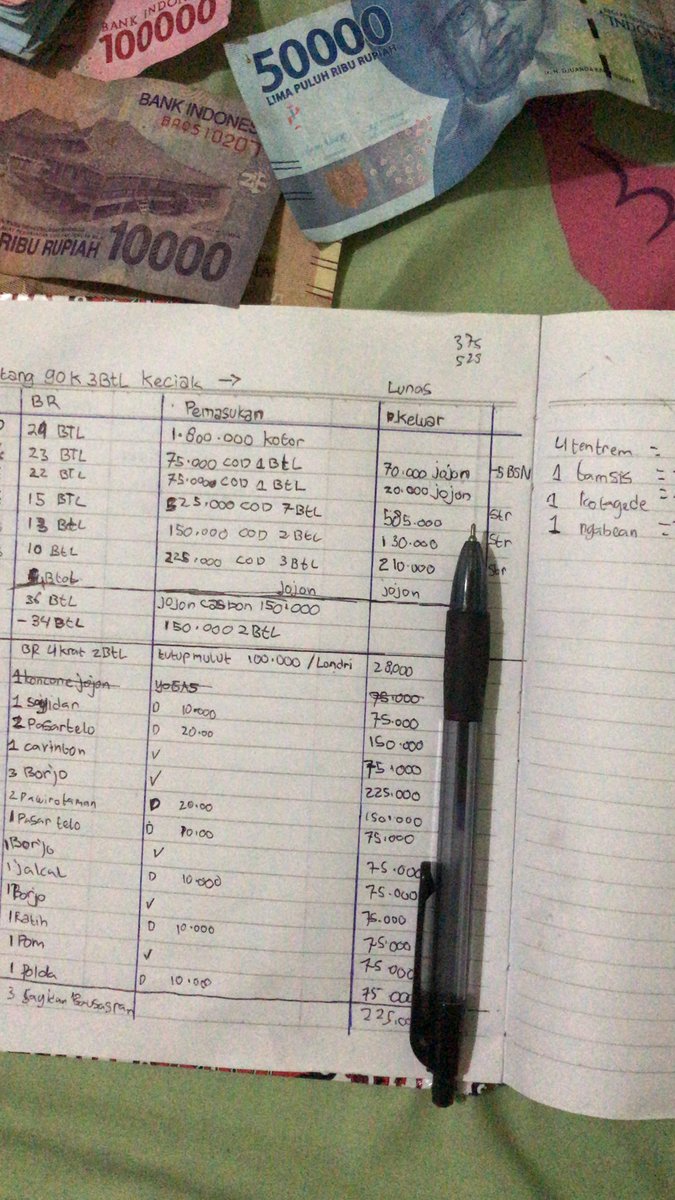 BANK INDON
100000
50000
LIMA PULUH RIBU RUPIAH
BANK INDONES
RIBU RUPIAH 10000
375
525
tang 90K 3BtL Keciak → Lunas
BR Pemasukan Keluar
29 BTL 1.800.000 kotor
23 BTL 75.000 COD 1 BtL 70.000 jojon -5 BSN
22 BTL 75.000 COD 1 BtL 20.000 jojon
15 BTL 525.000 COD 7 BtL 585.000 Str
13 BtL 150.000 COD 2 BtL 130.000 Str
10 BtL 225.000 COD 3 BtL 210.000 Str
jojon jojon
36 BtL jojon casbon 150.000
- 34 BtL 150.000 2 BtL
BR 4 krat 2 BTL tutup mulut 100.000 / Londri 28,000
1 koncone jojon 75.000
1 Sagidan D 10.000 75.000
2 Pasartelo D 20.00 150.000
1 carinton √ 75.000
3 Borjo √ 225.000
2 Pawirotaman D 20.00 150.000
1 Pasar telo D 10.00 75.000
1 Borjo √ 75.000
1 jalcal D 10.000 75.000
1 Borjo √ 75.000
1 Ratih D 10.000 75.000
1 Pom √ 75.000
1 Polda D 10.000 75.000
3 Sagkan 225.00
4 tentrem =
1 tamsis =
1 kotagede =
1 ngabean =